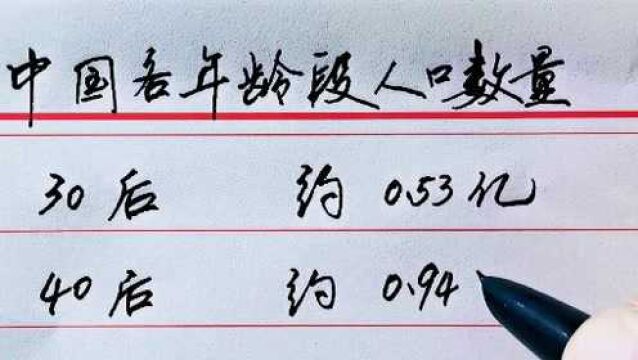 中国各年龄段人口数量
30后 约 0.53亿
40后 约 0.94